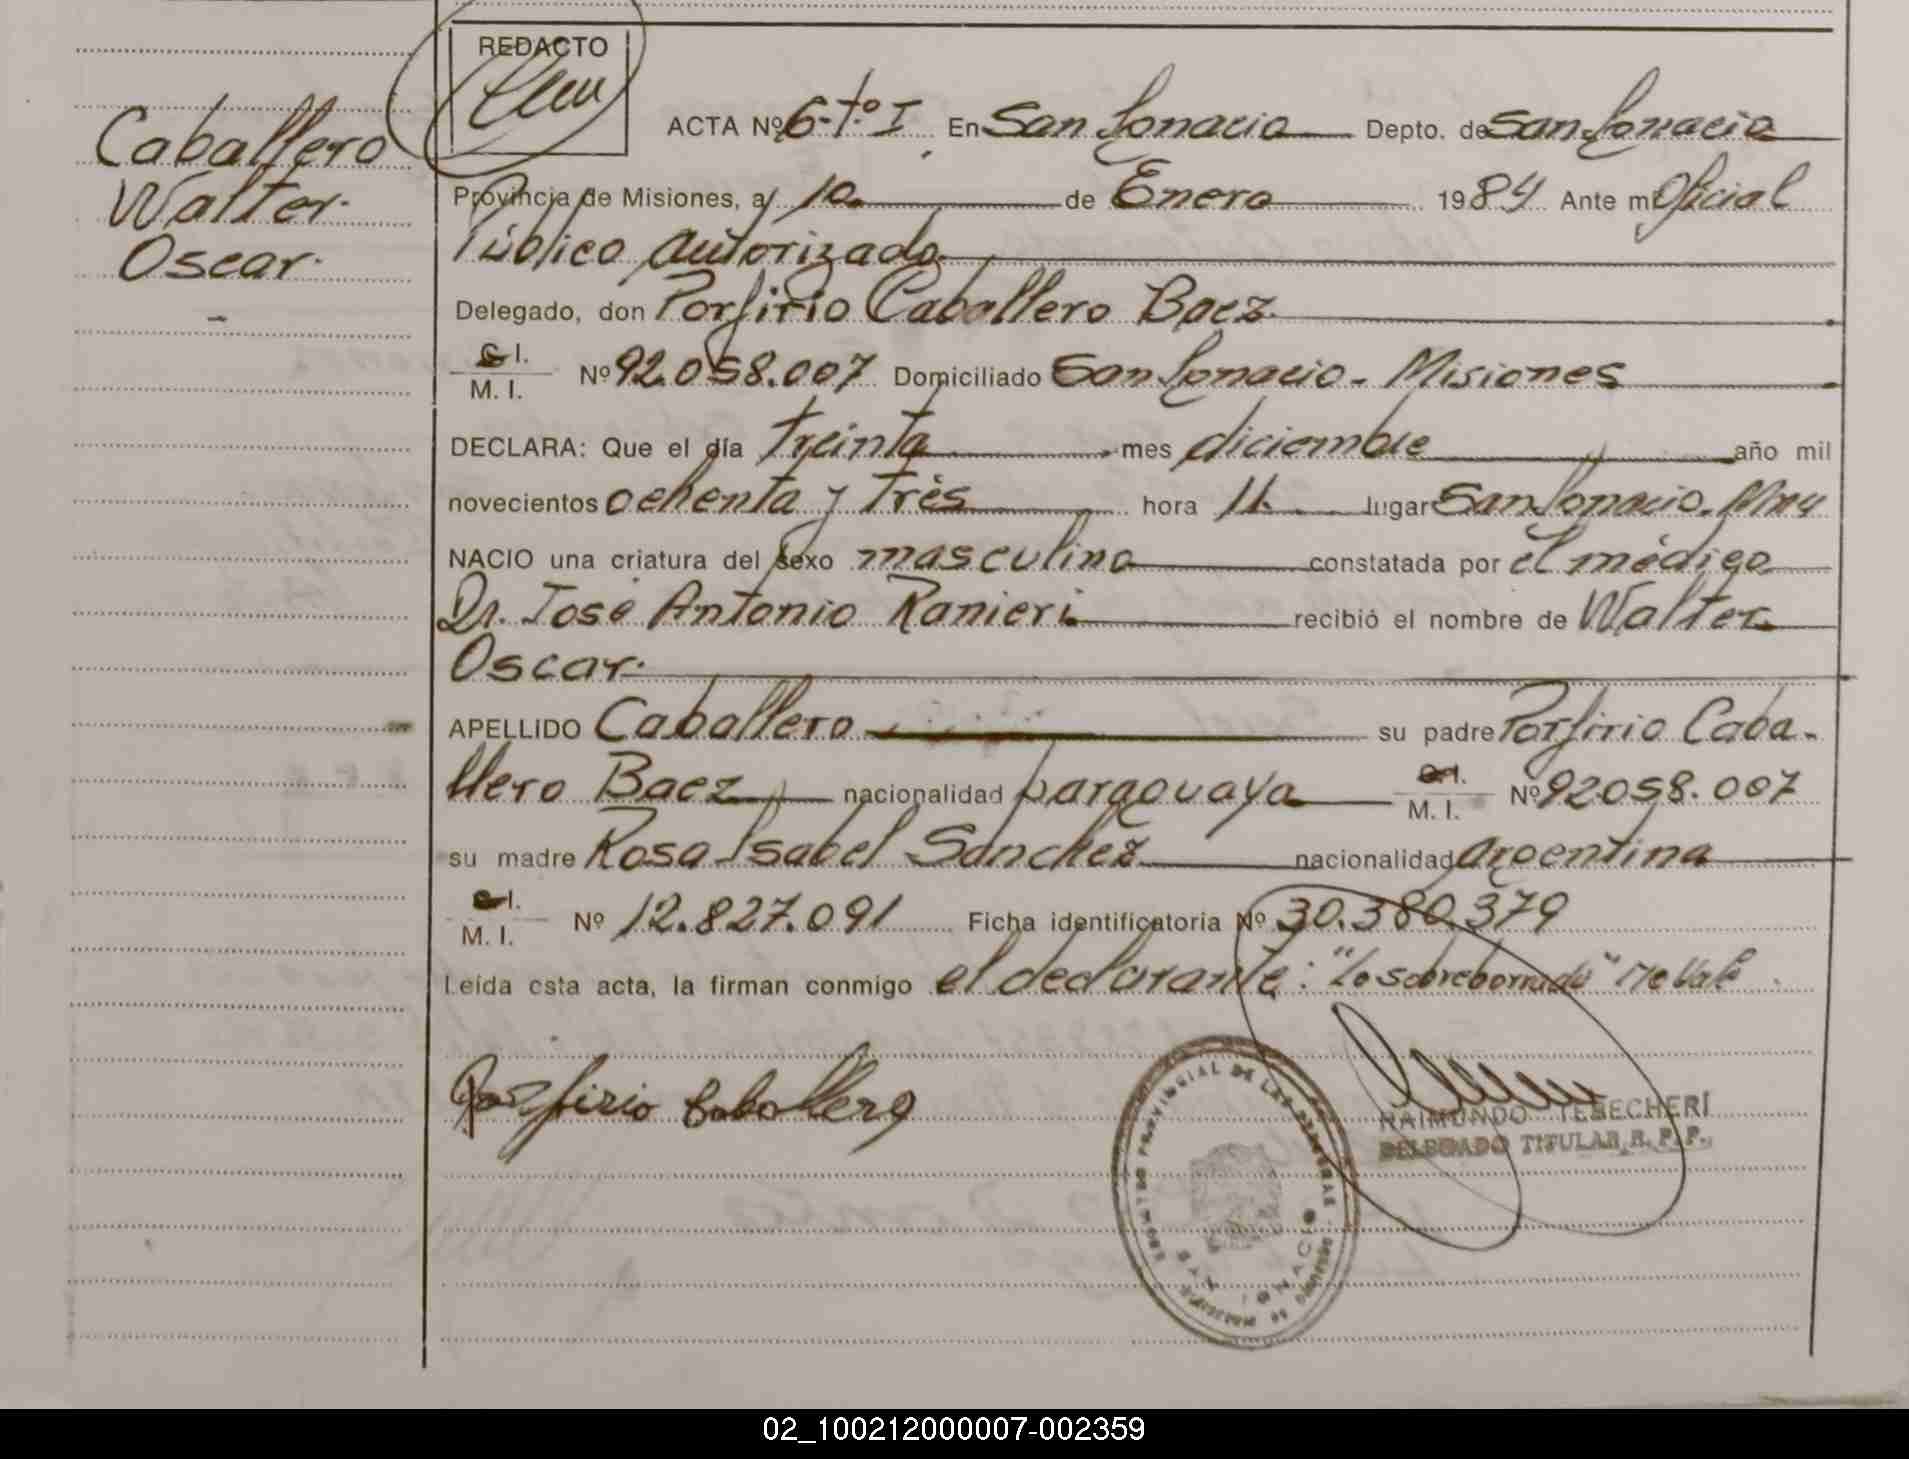 REDACTO
Caballero
Walter
Oscar.
ACTA Nº 6-tº I En San Ignacio Depto. de San Ignacio
Provincia de Misiones, a 10 de Enero 1984 Ante mi Oficial
Público autorizado
Delegado, don Porfirio Caballero Baez
C. I.
M. I. Nº 92.058.007 Domiciliado San Ignacio - Misiones
DECLARA: Que el día treinta mes diciembre año mil
novecientos ochenta y tres hora 11. lugar San Ignacio. Mnes
NACIO una criatura del sexo masculino constatada por el médico
Dr. José Antonio Ranieri recibió el nombre de Walter
Oscar.
APELLIDO Caballero su padre Porfirio Caba-
llero Baez nacionalidad paraguaya C. I. M. I. Nº 92.058.007
su madre Rosa Isabel Sánchez nacionalidad argentina
C. I.
M. I. Nº 12.827.091 Ficha identificatoria Nº 30.380.379
Leída esta acta, la firman conmigo el declarante: "Lo sobreborrado" No Vale.
Porfirio Caballero
REGISTRO PROVINCIAL DE LAS PERSONAS
SAN IGNACIO
RAIMUNDO TEBECHERI
DELEGADO TITULAR R. P. P.
02_100212000007-002359